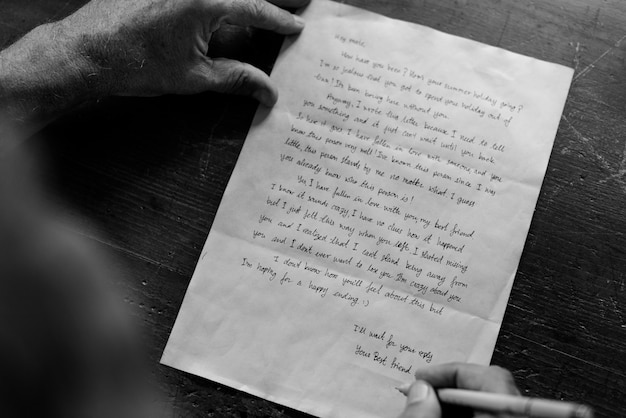 Hey dude,
How have you been? How's your summer holiday going?
I'm so jealous that you got to spend your holiday out of
town! It's been boring here without you.
Anyway, I wrote this letter because I need to tell
you something and it just can't wait until you back.
So here it goes. I have fallen in love with someone and you
know this person very well! I've known this person since I was
little, this person stands by me no matter what. I guess
you already know who this person is!
Yes, I have fallen in love with you, my best friend.
I know it sounds crazy, I have no clues how it happened
but I just felt this way when you left. I started missing
you and I realized that I can't stand being away from
you and I don't ever want to lose you. I'm crazy about you
I don't know how you'll feel about this but
I'm hoping for a happy ending :)
I'll wait for your reply
Your Best friend